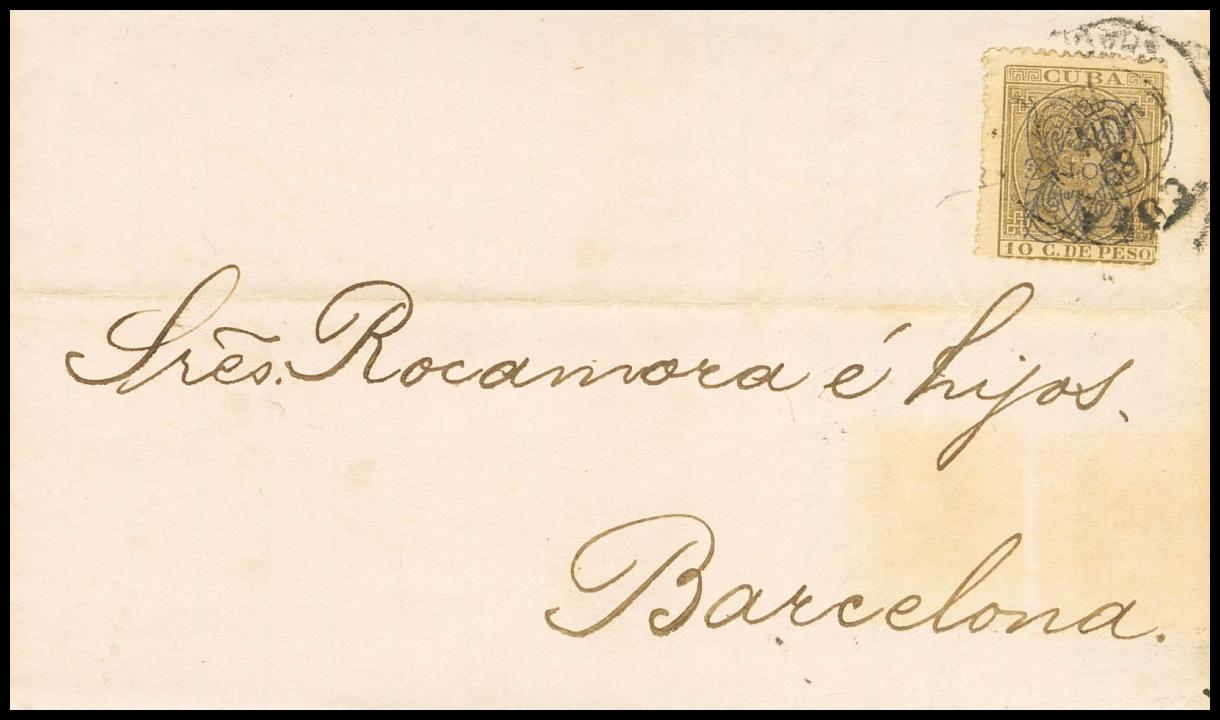 CUBA
JUN
10 C. DE PESO
Srēs. Rocamora é hijos.
Barcelona.